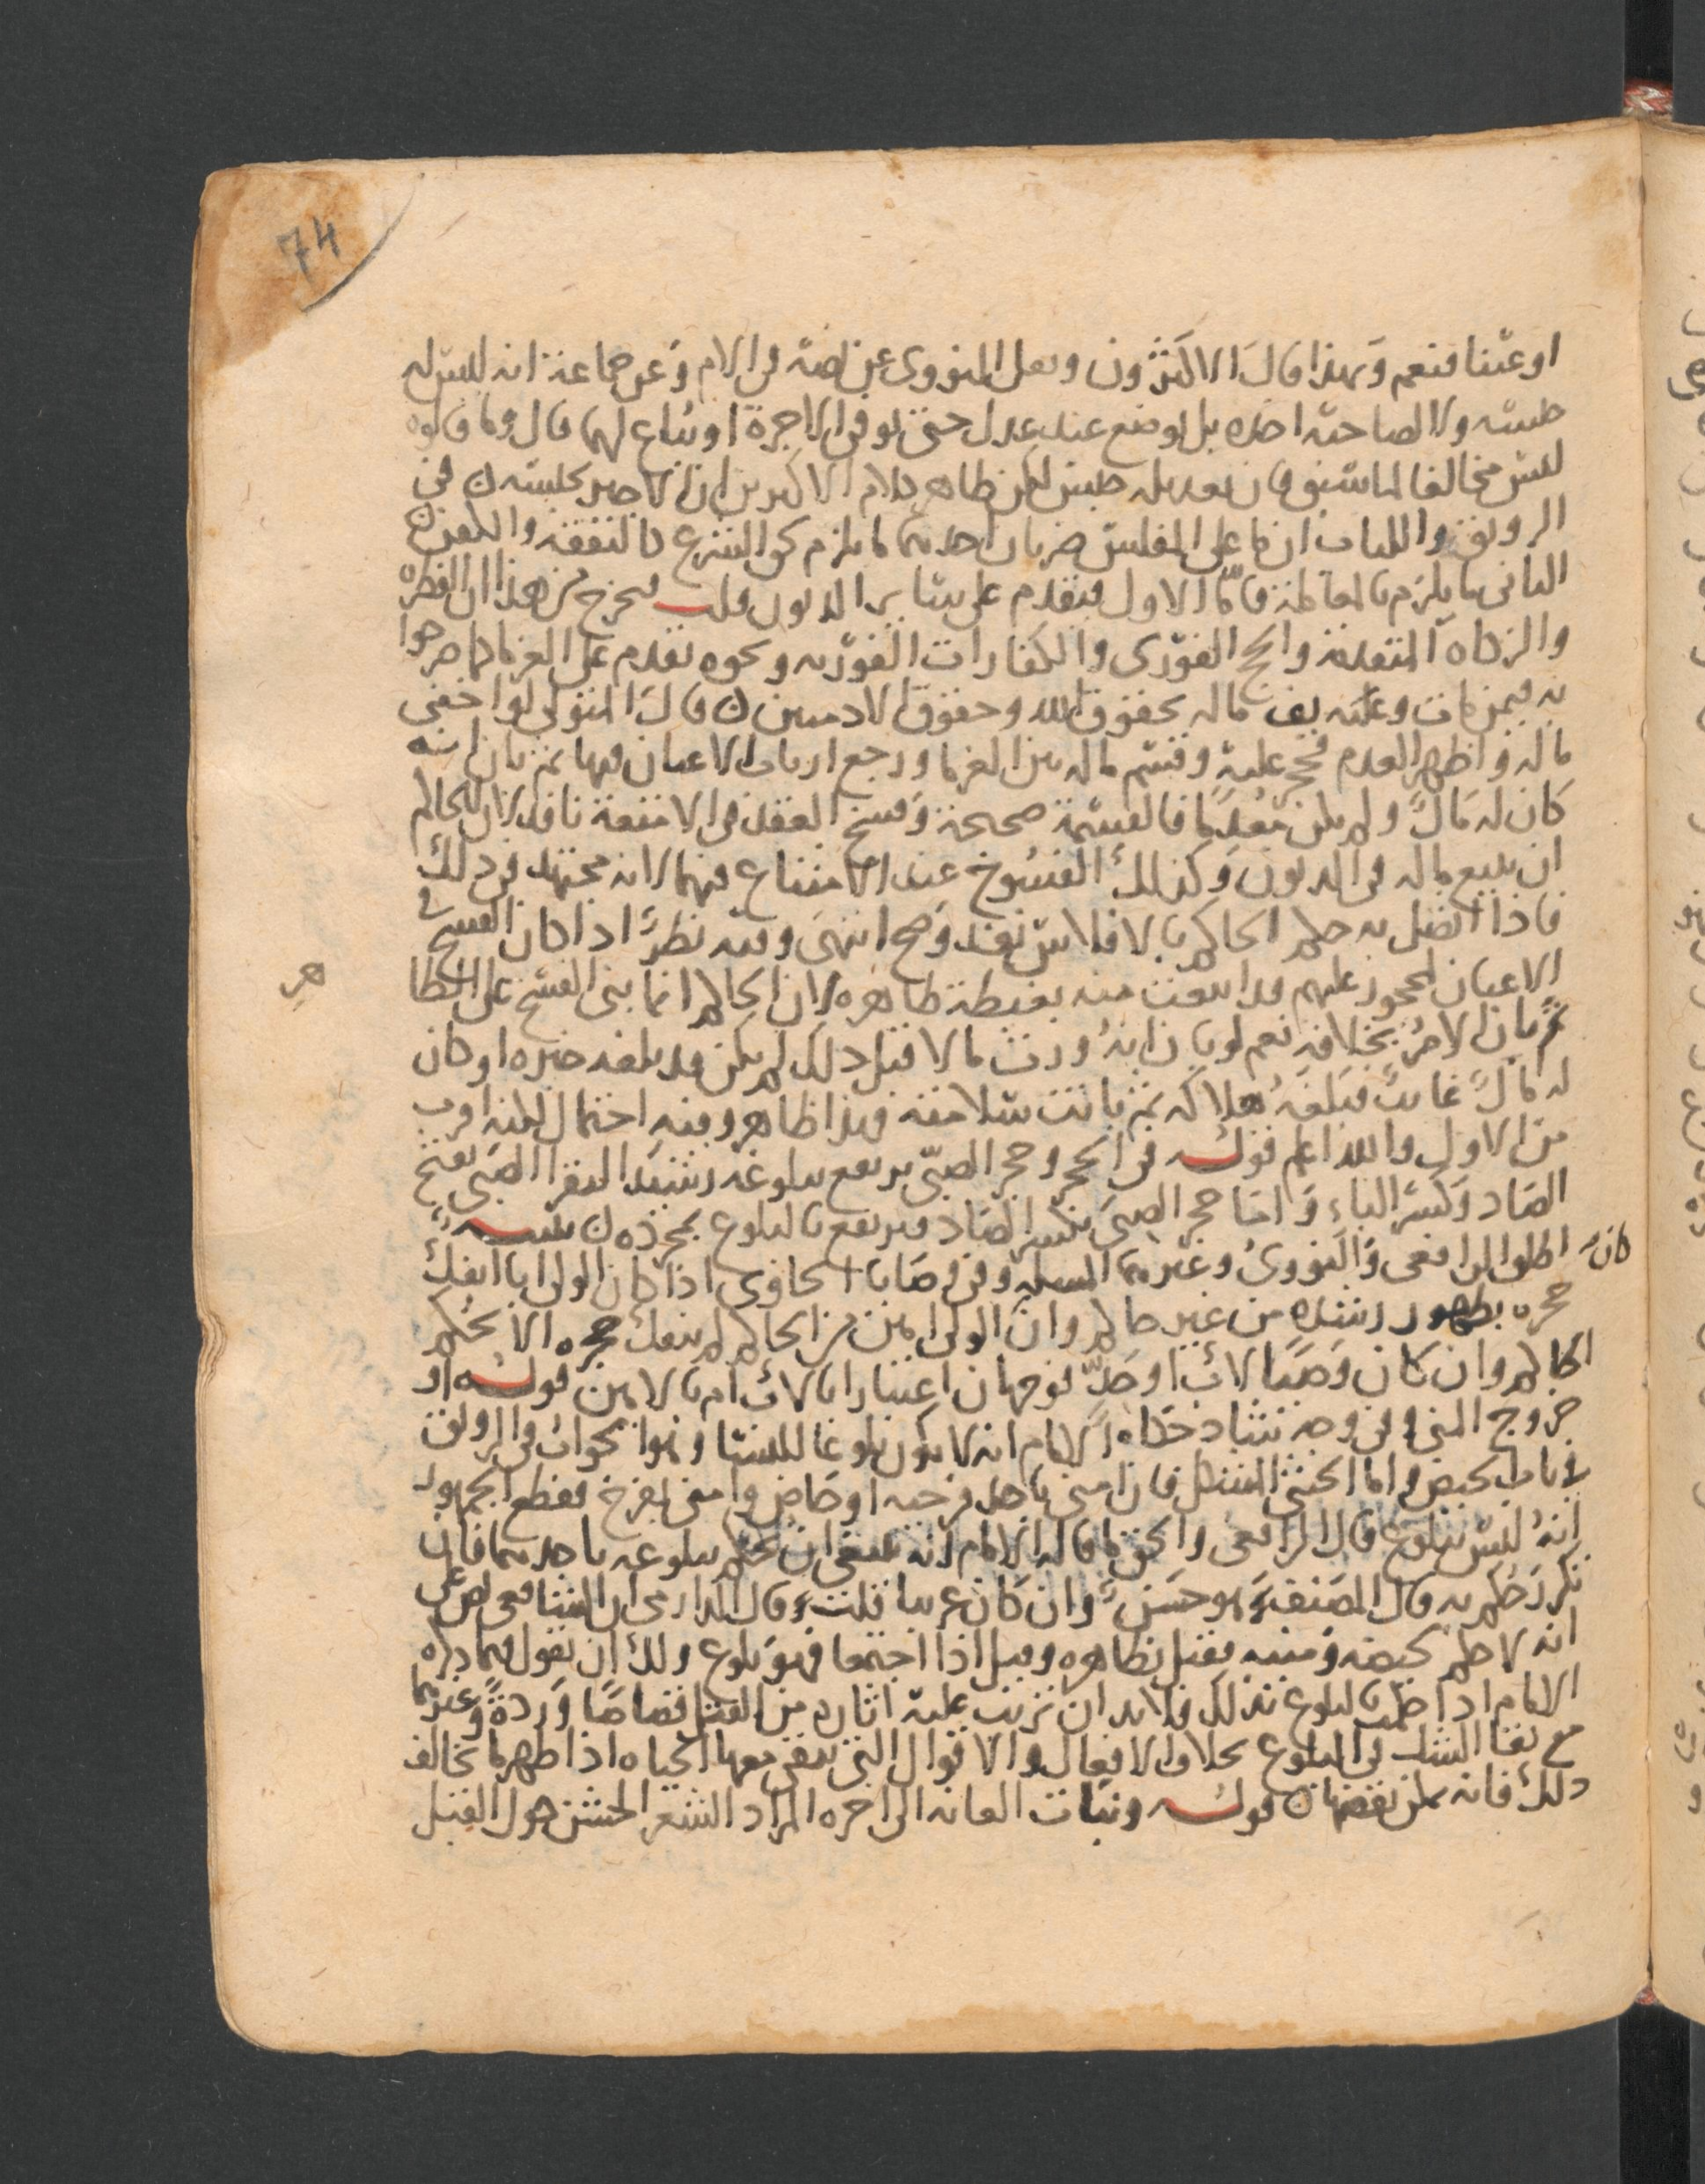 74
او عينا فنعم وبهذا قال الاكثرون ونقل النووي عن نصه في الام وعن جماعة انه ليس له
حبسه ولا لصاحبه اخذه بل يوضع عند عدل حتى يوفى الاجرة او يباع لهما قال وما قالوه
ليس مخالفا لما سبق فان تعديله حبس لكن ظاهر كلام الاكثرين ان الاجير يحبسه ن في
الرونق واللباب ان ما على المفلس ضربان احدهما ما يلزم كو الشرع كالنفقة والكفن
الثاني ما يلزم بالمعاملة فاما الاول فيقدم على سائر الديون قلت فيخرج من هذا ان الفطره
والزكاه المتقدمة والحج الفوري والكفارات الفوريه ونحوه تقدم على الغرما كما صرحوا
به فيمن مات وعليه يف ماله بحقوق الله وحقوق الادميين ن قال المتولي لو اخفى
ماله واظهر العدم فحجر عليه وقسم ماله بين الغرما ورجع ارباب الاعيان فيها ثم بان انه
كان له مال ولم يكن معدما فالقسمة صحيحة وفسخ العقد في الامتعة نافذ لان للحاكم
ان يبيع ماله في الديون وكذلك الفسوخ عند الامتناع فيهما لانه مجتهد في ذلك
فاذا اتصل به حكم الحاكم بالافلاس نفذ وصح انتهى وفيه نظر اذا كان الفسخ في
الاعيان لمحجور عليهم قد ابيعت منه بغبطة ظاهره لان الحاكم انما بنى الفسخ على الخطا
ثم بان الامر بخلافه نعم لو بان انه ورث مالا قبل ذلك لم يكن قد بلغه خبره او كان
له مال غايب فبلغه هلاكه ثم بانت سلامته فهذا ظاهر وفيه احتمال لكنه اقرب
من الاول والله اعلم قوله في الحجر وحجر الصبي يرتفع ببلوغه رشيدا ليقرا الصبي بفتح
الصاد وكسر الباء واما حجر الصبى بكسر الصاد فيرتفع بالبلوغ بمجرده ن تنبيه
اطلق الرافعي والنووي وغيرهما المسله وفي قضايا الحاوي اذا كان الولي ابا انفك
كان
حجره بظهور رشده من غير حاكم وان الولي امين من الحاكم لم ينفك حجره الا بحكم
الحاكم وان كان وصيا لاب او جد فوجهان اعتبارا بالاب ام بالامين قوله او
خروج المني وفي وجه شاذ حكاه الامام انه لا يكون بلوغا للنسا وهوا بحواب في الرونق
في باب الحيض واما الخنثى المشكل فان امنى باحد فرجيه او حاض وامنى بفرج فقطع الجمهور
انه ليس ببلوغ قال الرافعي والحق ما قاله الامام انه ينبغي ان نحكم ببلوغه باحدهما فان
تكرر حكم به قال المصنف وهو حسن وان كان غريبا قلت وقال الدارمي ان الشافعي نص على
انه لا حكم لحيضه ومنيه فقيل بظاهره وقيل اذا اجتمعا فهو بلوغ ولك ان تقول فيما ذكره
الامام اذا حكمت بالبلوغ بذلك فلا بد ان ترتب عليه اثاره من القتل قصاصا وردة وغيرهما
مع بقا الشك في البلوغ بخلاف الافعال والاقوال التي تبقى معها الحياه اذا ظهر ما يخالف
ذلك فانه يمكن نقضها ن قوله ونبات العانه الى اخره المراد الشعر الخشن حول القبل